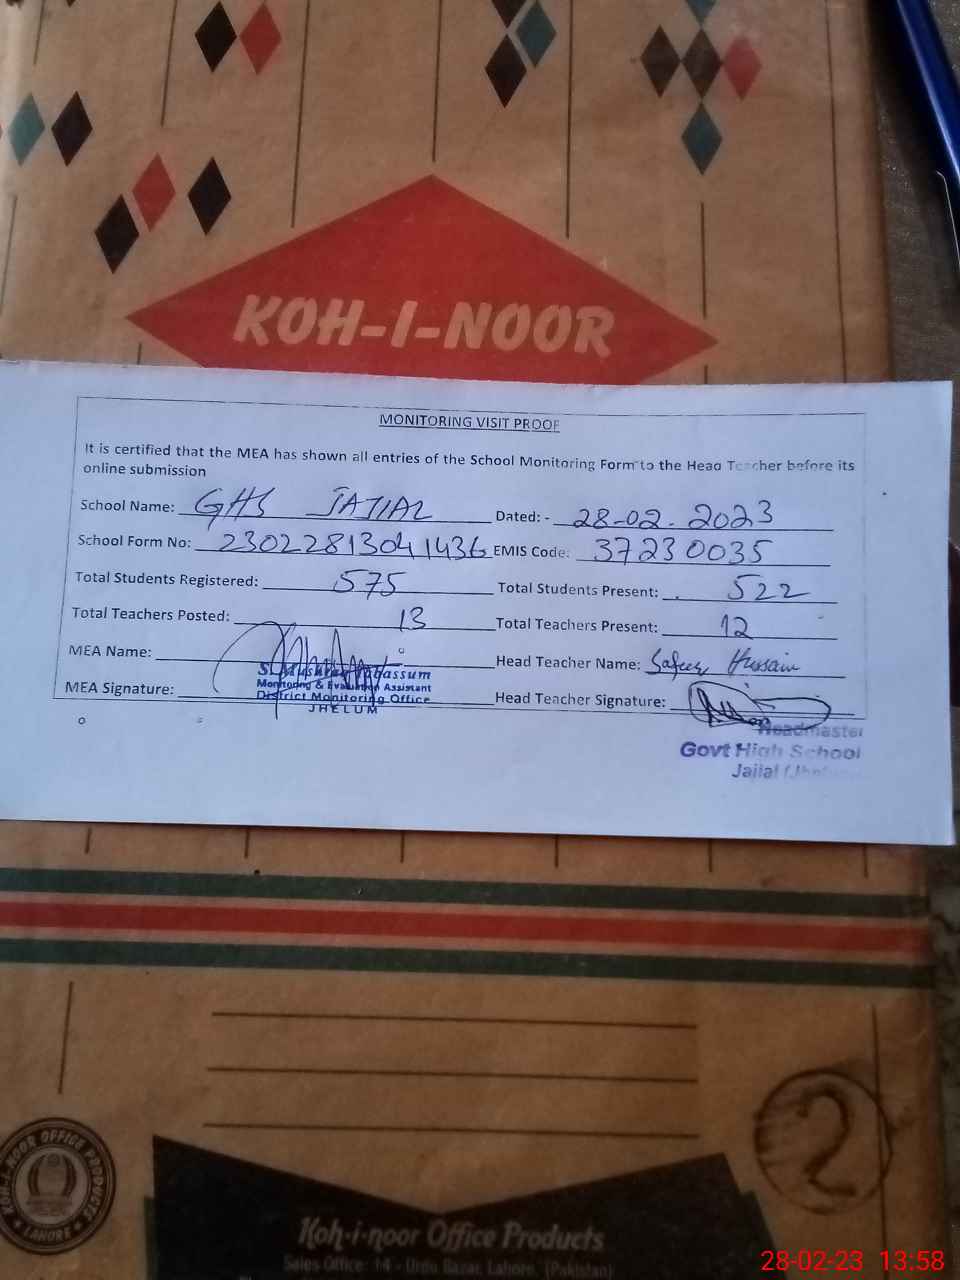 KOH-I-NOOR
MONITORING VISIT PROOF
It is certified that the MEA has shown all entries of the School Monitoring Form to the Head Teacher before its
online submission
School Name: GHS JAJIAL Dated: - 28-02-2023
School Form No: 23022813041436 EMIS Code: 37230035
Total Students Registered: 575 Total Students Present: 522
Total Teachers Posted: 13 Total Teachers Present: 12
MEA Name: Head Teacher Name: Safeer Hussain
MEA Signature: Head Teacher Signature:
Tabassum
Monitoring & Evaluation Assistant
District Monitoring Office
JHELUM
Headmaster
Govt High School
2
KOH-I-NOOR OFFICE PRODUCTS
LAHORE
Koh-i-noor Office Products
Sales Office: 14 - Urdu Bazar, Lahore. (Pakistan)
28-02-23 13:58